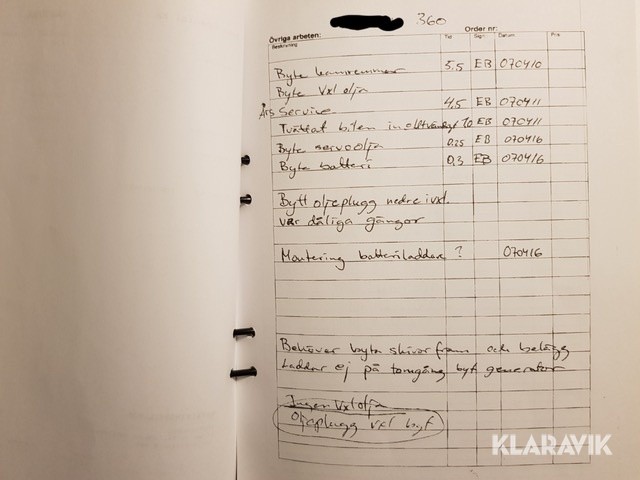 360
Övriga arbeten: Order nr:
Beskrivning Tid Sign Datum Pris
Byte kamremmar 5,5 EB 070410
Byte Vxl olja
Års Service 4,5 EB 070411
Tvättat bilen EB 070411
Byte servoolja 0,25 EB 070416
Byte batteri 0,3 EB 070416
Bytt oljeplugg nedre i vxl.
var dåliga gängor
Montering batteriladdare ? 070416
Behöver byta skivor fram och belägg
Laddar ej på tomgång byt generator
Ingen Vxl olja
Oljeplugg vxl byt
KLARAVIK